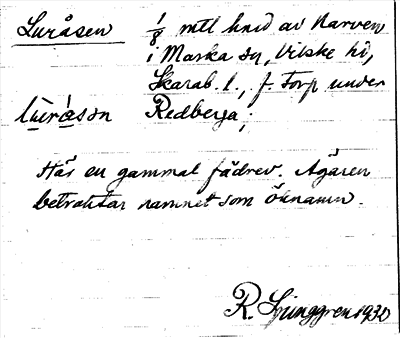 Luråsen 1/8 mtl hnid av Narven
i Marka sn, Vilske hd,
Skarab. l., f. torp under
lu̇rȧ̇sɔn Redberga;
Här en gammal fädrev. Ägaren
betraktar namnet som öknamn.
R. Ljunggren 1930